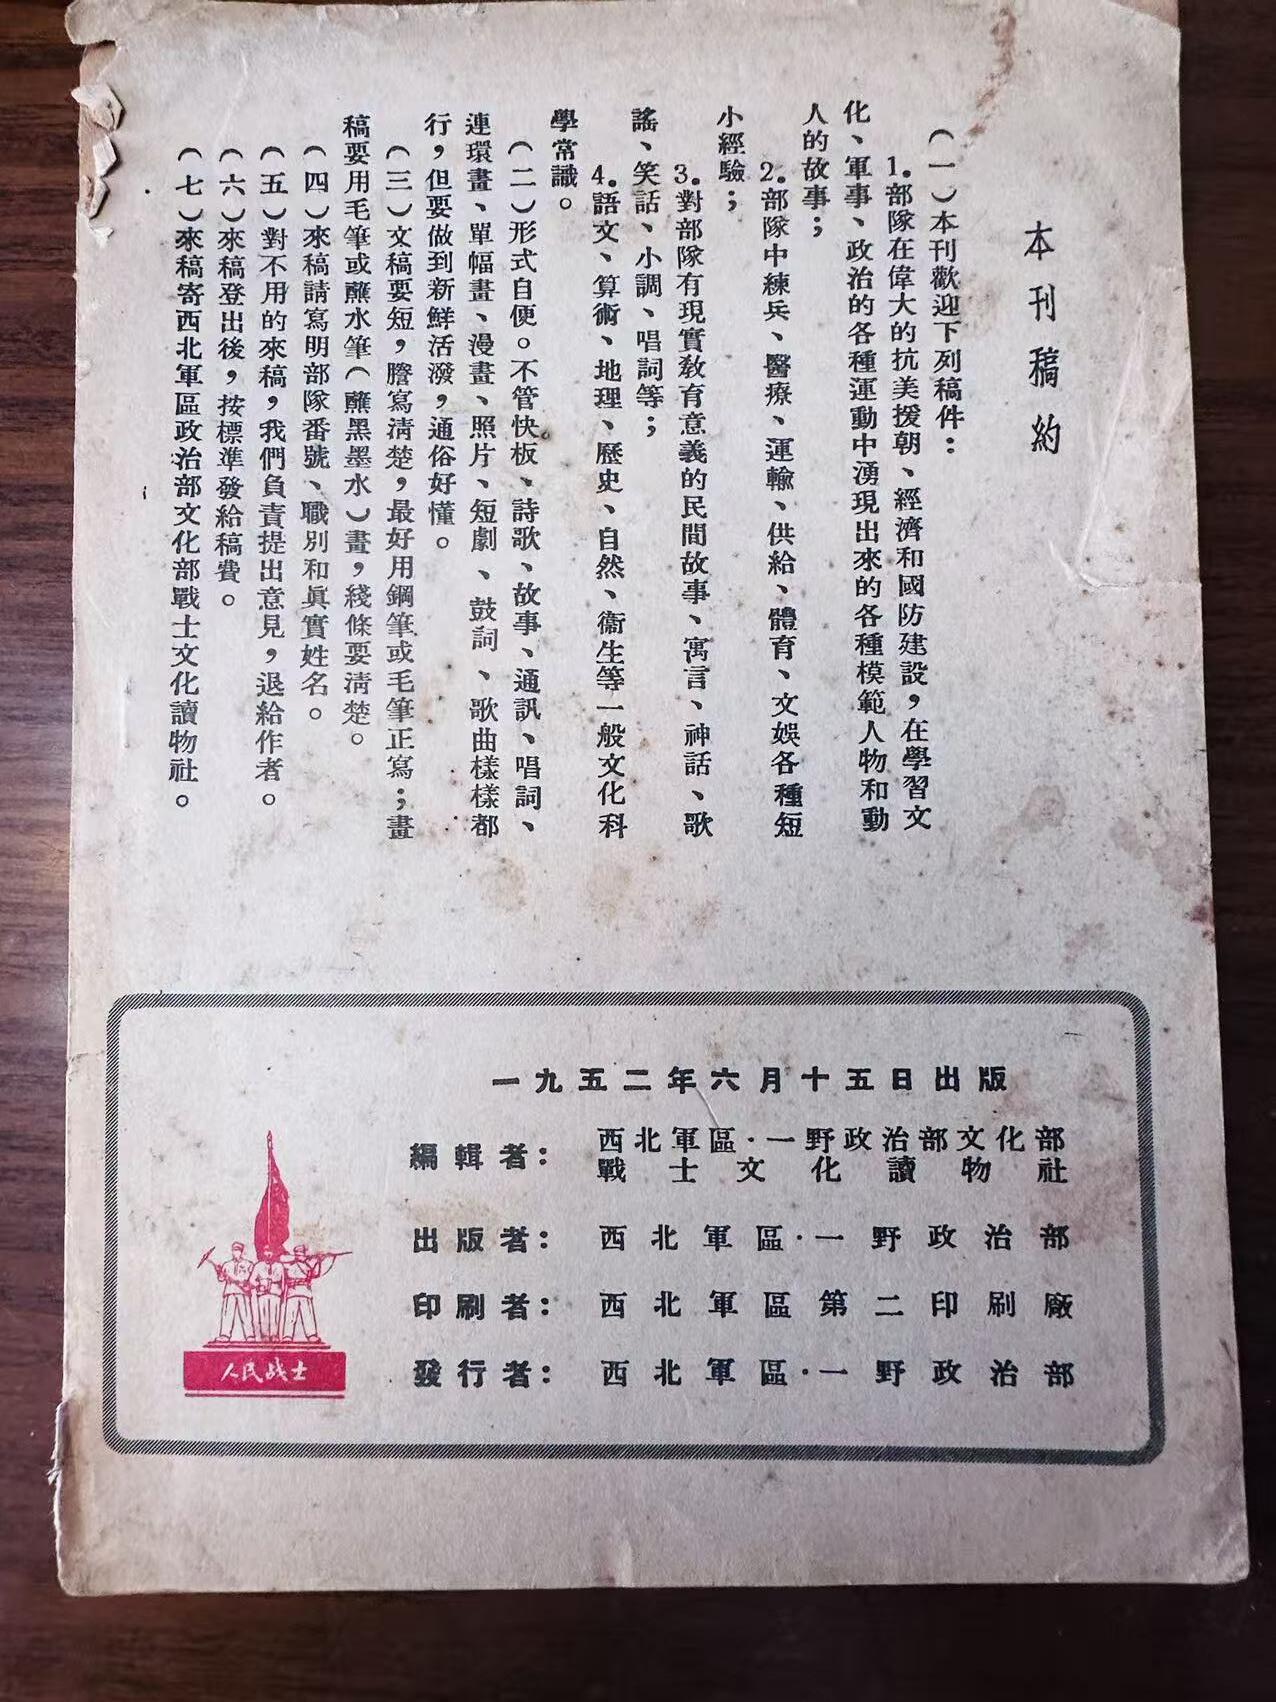 本刊稿約
（一）本刊歡迎下列稿件：
1.部隊在偉大的抗美援朝、經濟和國防建設，在學習文
化、軍事、政治的各種運動中湧現出來的各種模範人物和動
人的故事；
2.部隊中練兵、醫療、運輸、供給、體育、文娛各種短
小經驗；
3.對部隊有現實教育意義的民間故事、寓言、神話、歌
謠、笑話、小調、唱詞等；
4.語文、算術、地理、歷史、自然、衞生等一般文化科
學常識。
（二）形式自便。不管快板、詩歌、故事、通訊、唱詞、
連環畫、單幅畫、漫畫、照片、短劇、鼓詞、歌曲樣樣都
行，但要做到新鮮活潑，通俗好懂。
（三）文稿要短，謄寫清楚，最好用鋼筆或毛筆正寫；畫
稿要用毛筆或蘸水筆（蘸黑墨水）畫，綫條要清楚。
（四）來稿請寫明部隊番號、職別和眞實姓名。
（五）對不用的來稿，我們負責提出意見，退給作者。
（六）來稿登出後，按標準發給稿費。
（七）來稿寄西北軍區政治部文化部戰士文化讀物社。
一九五二年六月十五日出版
編輯者：西北軍區·一野政治部文化部
戰士文化讀物社
出版者：西北軍區·一野政治部
印刷者：西北軍區第二印刷廠
發行者：西北軍區·一野政治部
人民战士